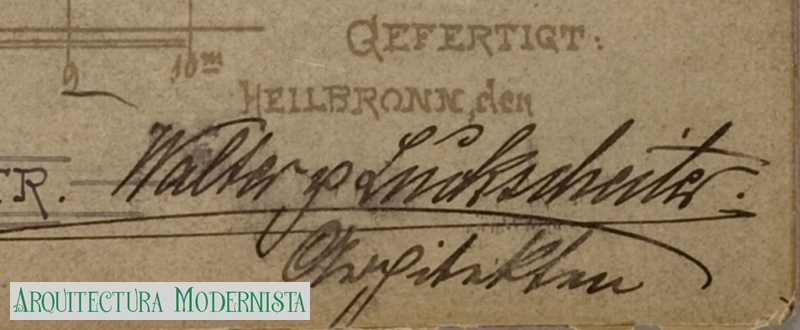 GEFERTIGT:
9 10 m
HEILBRONN, den
TR. Walter & Luckscheiter.
Architekten
ARQUITECTURA MODERNISTA